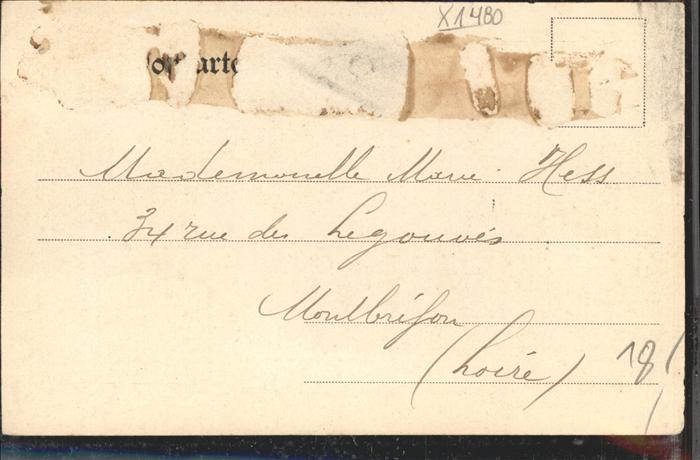 X1480
Postkarte
Mademoiselle Marie Hess
34 rue des Legouvés
Montbrison
(Loire)
18